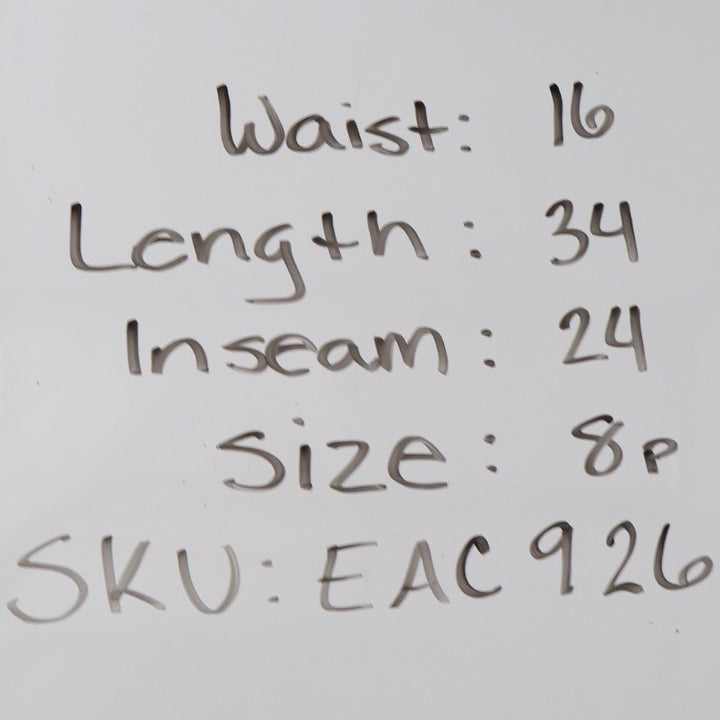 Waist: 16
Length: 34
Inseam: 24
Size: 8P
SKU: EAC926